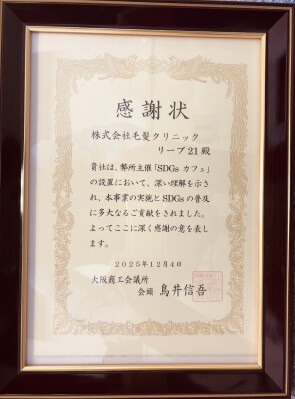 感謝状
株式会社毛髪クリニック
リーブ21殿
貴社は、弊所主催「SDGs カフェ」
の設置において、深い理解を示さ
れ、本事業の実施とSDGsの普及
に多大なるご貢献をされました。
よってここに深く感謝の意を表し
ます。
2025年12月4日
大阪商工会議所
会頭 鳥井信吾